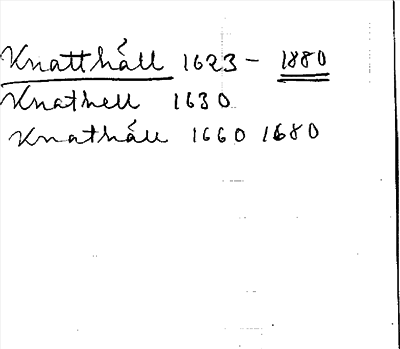 Knatthåll 1623 - 1880
Knathell 1630
Knathåll 1660 1680